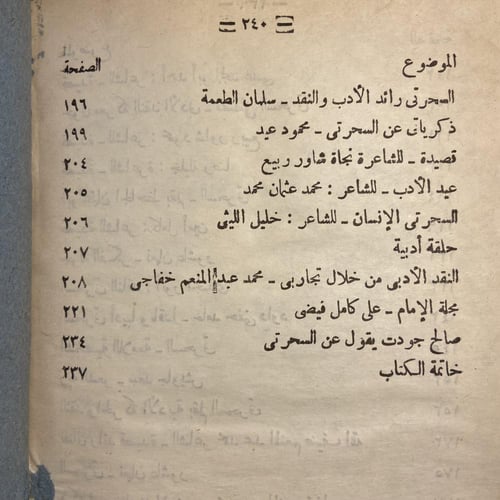 — ٢٤٠ —
الموضوع الصفحة
السحرتى رائد الأدب والنقد ـ سلمان الطعمة ١٩٦
ذكرياتى عن السحرتى ـ محمود عيد ١٩٩
قصيدة ـ للشاعرة نجاة شاور ربيع ٢٠٤
عيد الأدب ـ للشاعر : محمد عثمان محمد ٢٠٥
السحرتى الإنسان ـ للشاعر : خليل الليثى ٢٠٦
حلقة أدبية ٢٠٧
النقد الأدبى من خلال تجاربى ـ محمد عبد المنعم خفاجى ٢٠٨
مجلة الإمام ـ على كامل فيضى ٢٢١
صالح جودت يقول عن السحرتى ٢٣٤
خاتمة الكتاب ٢٣٧